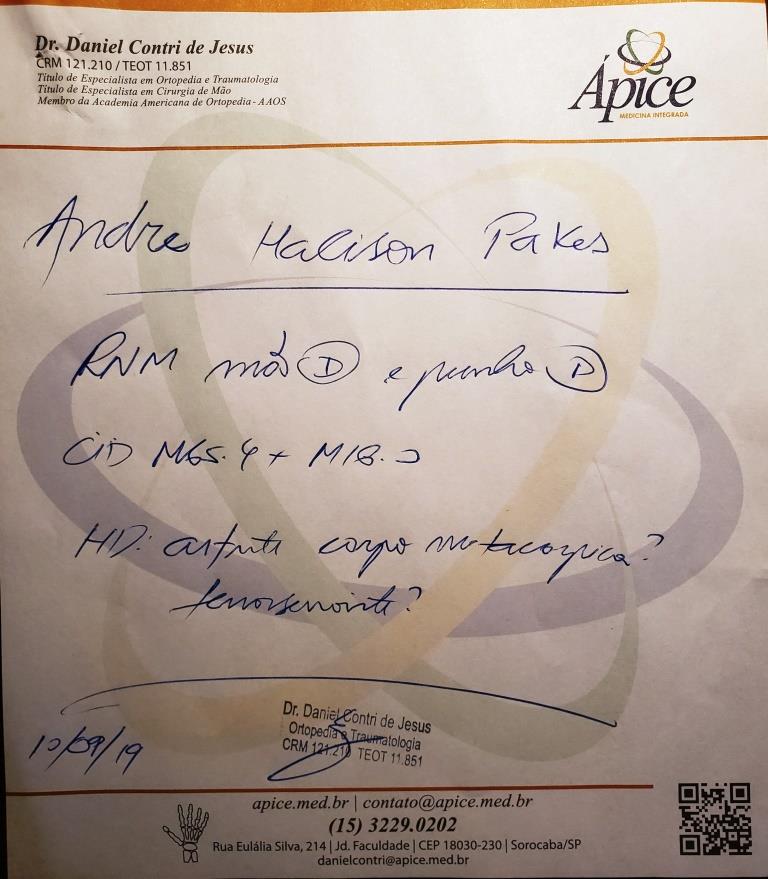 Dr. Daniel Contri de Jesus
CRM 121.210 / TEOT 11.851
Título de Especialista em Ortopedia e Traumatologia
Título de Especialista em Cirurgia de Mão
Membro da Academia Americana de Ortopedia - AAOS
Ápice
MEDICINA INTEGRADA
Andre Halison Pakes
RNM mão D e punho D
CID M65.4 + M18.
HD: artrite carpo metacarpica?
tenossinovite?
10/09/19
Dr. Daniel Contri de Jesus
Ortopedia e Traumatologia
CRM 121.210 TEOT 11.851
apice.med.br | contato@apice.med.br
(15) 3229.0202
Rua Eulália Silva, 214 | Jd. Faculdade | CEP 18030-230 | Sorocaba/SP
danielcontri@apice.med.br